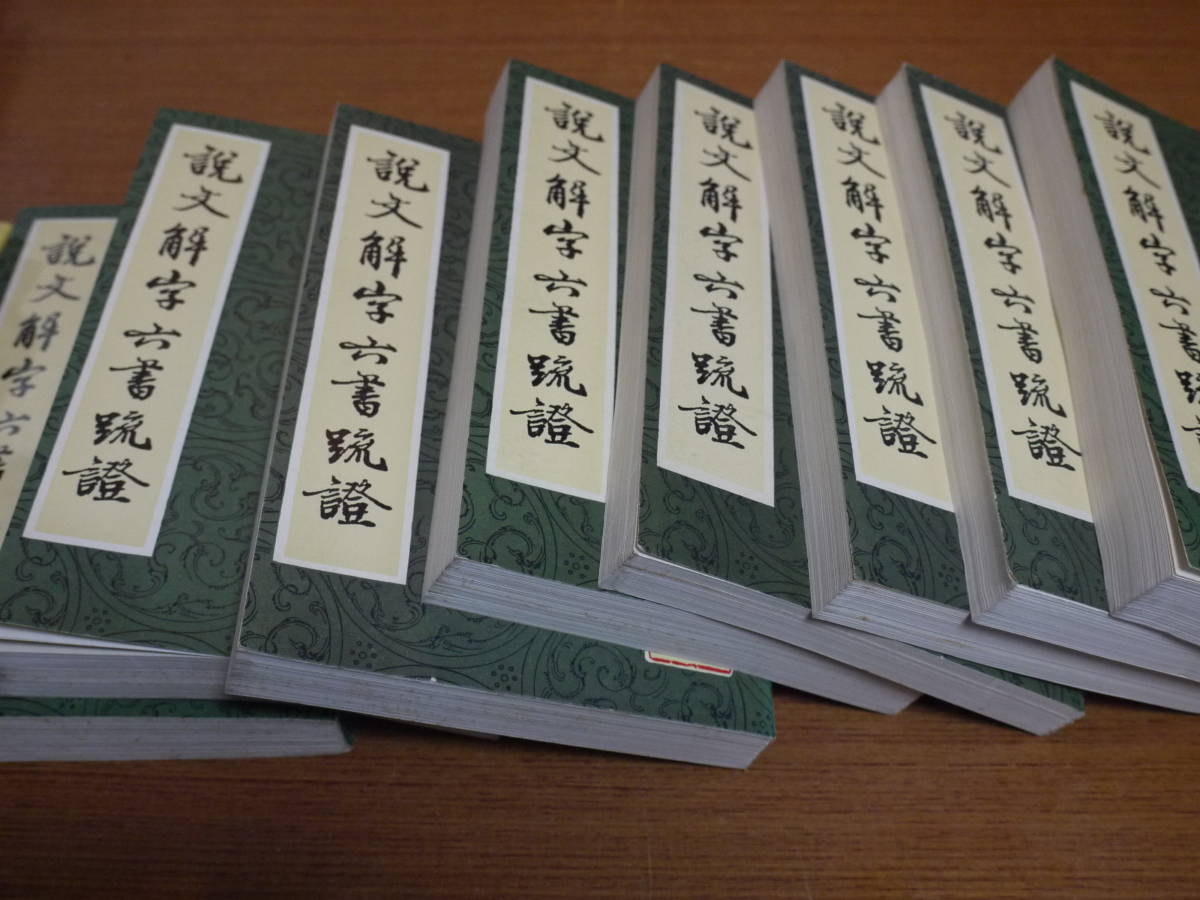 說文解字六書
說文解字六書疏證
說文解字六書疏證
說文解字六書疏證
說文解字六書疏證
說文解字六書疏證
說文解字六書疏證
說文解字六書疏證